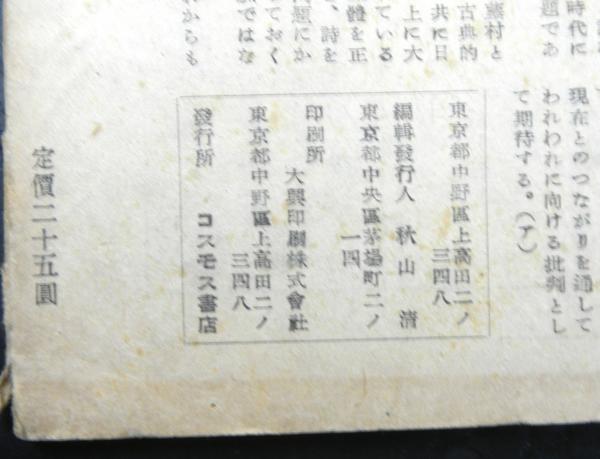 時代に
題であ
藤村と
古典的
共に日
上に大
ている
體を正
、詩を
題にか
ておく
ではな
れからも
現在とのつながりを通して
われわれに向ける批判とし
て期待する。(ア)
東京都中野區上高田二ノ
三四八
編輯發行人 秋山 清
東京都中央區茅場町二ノ
一四
印刷所
大興印刷株式會社
東京都中野區上高田二ノ
三四八
發行所 コスモス書店
定價二十五圓